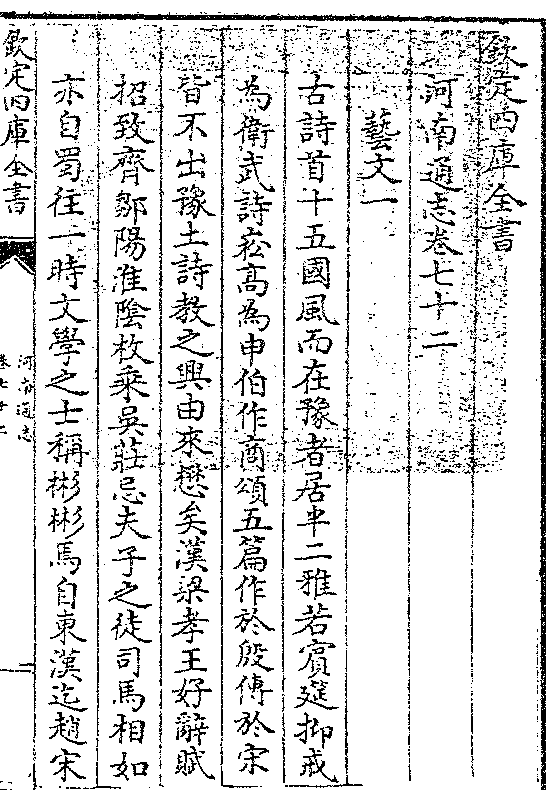 欽定四庫全書
河南通志卷七十二
藝文一
古詩首十五國風而在豫者居半二雅若賓筵抑戒
為衛武詩崧高為申伯作商頌五篇作於殷傅於宋
皆不出豫土詩教之興由來懋矣漢梁孝王好辭賦
招致齊鄒陽淮陰枚乗吳莊忌夫子之徒司馬相如
亦自蜀往一時文學之士稱彬彬焉自東漢迄趙宋
欽定四庫全書
河南通志
卷七十二
一